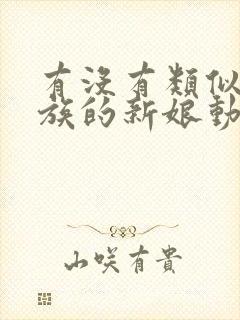 有沒有類似
族的新娘動
山咲有貴